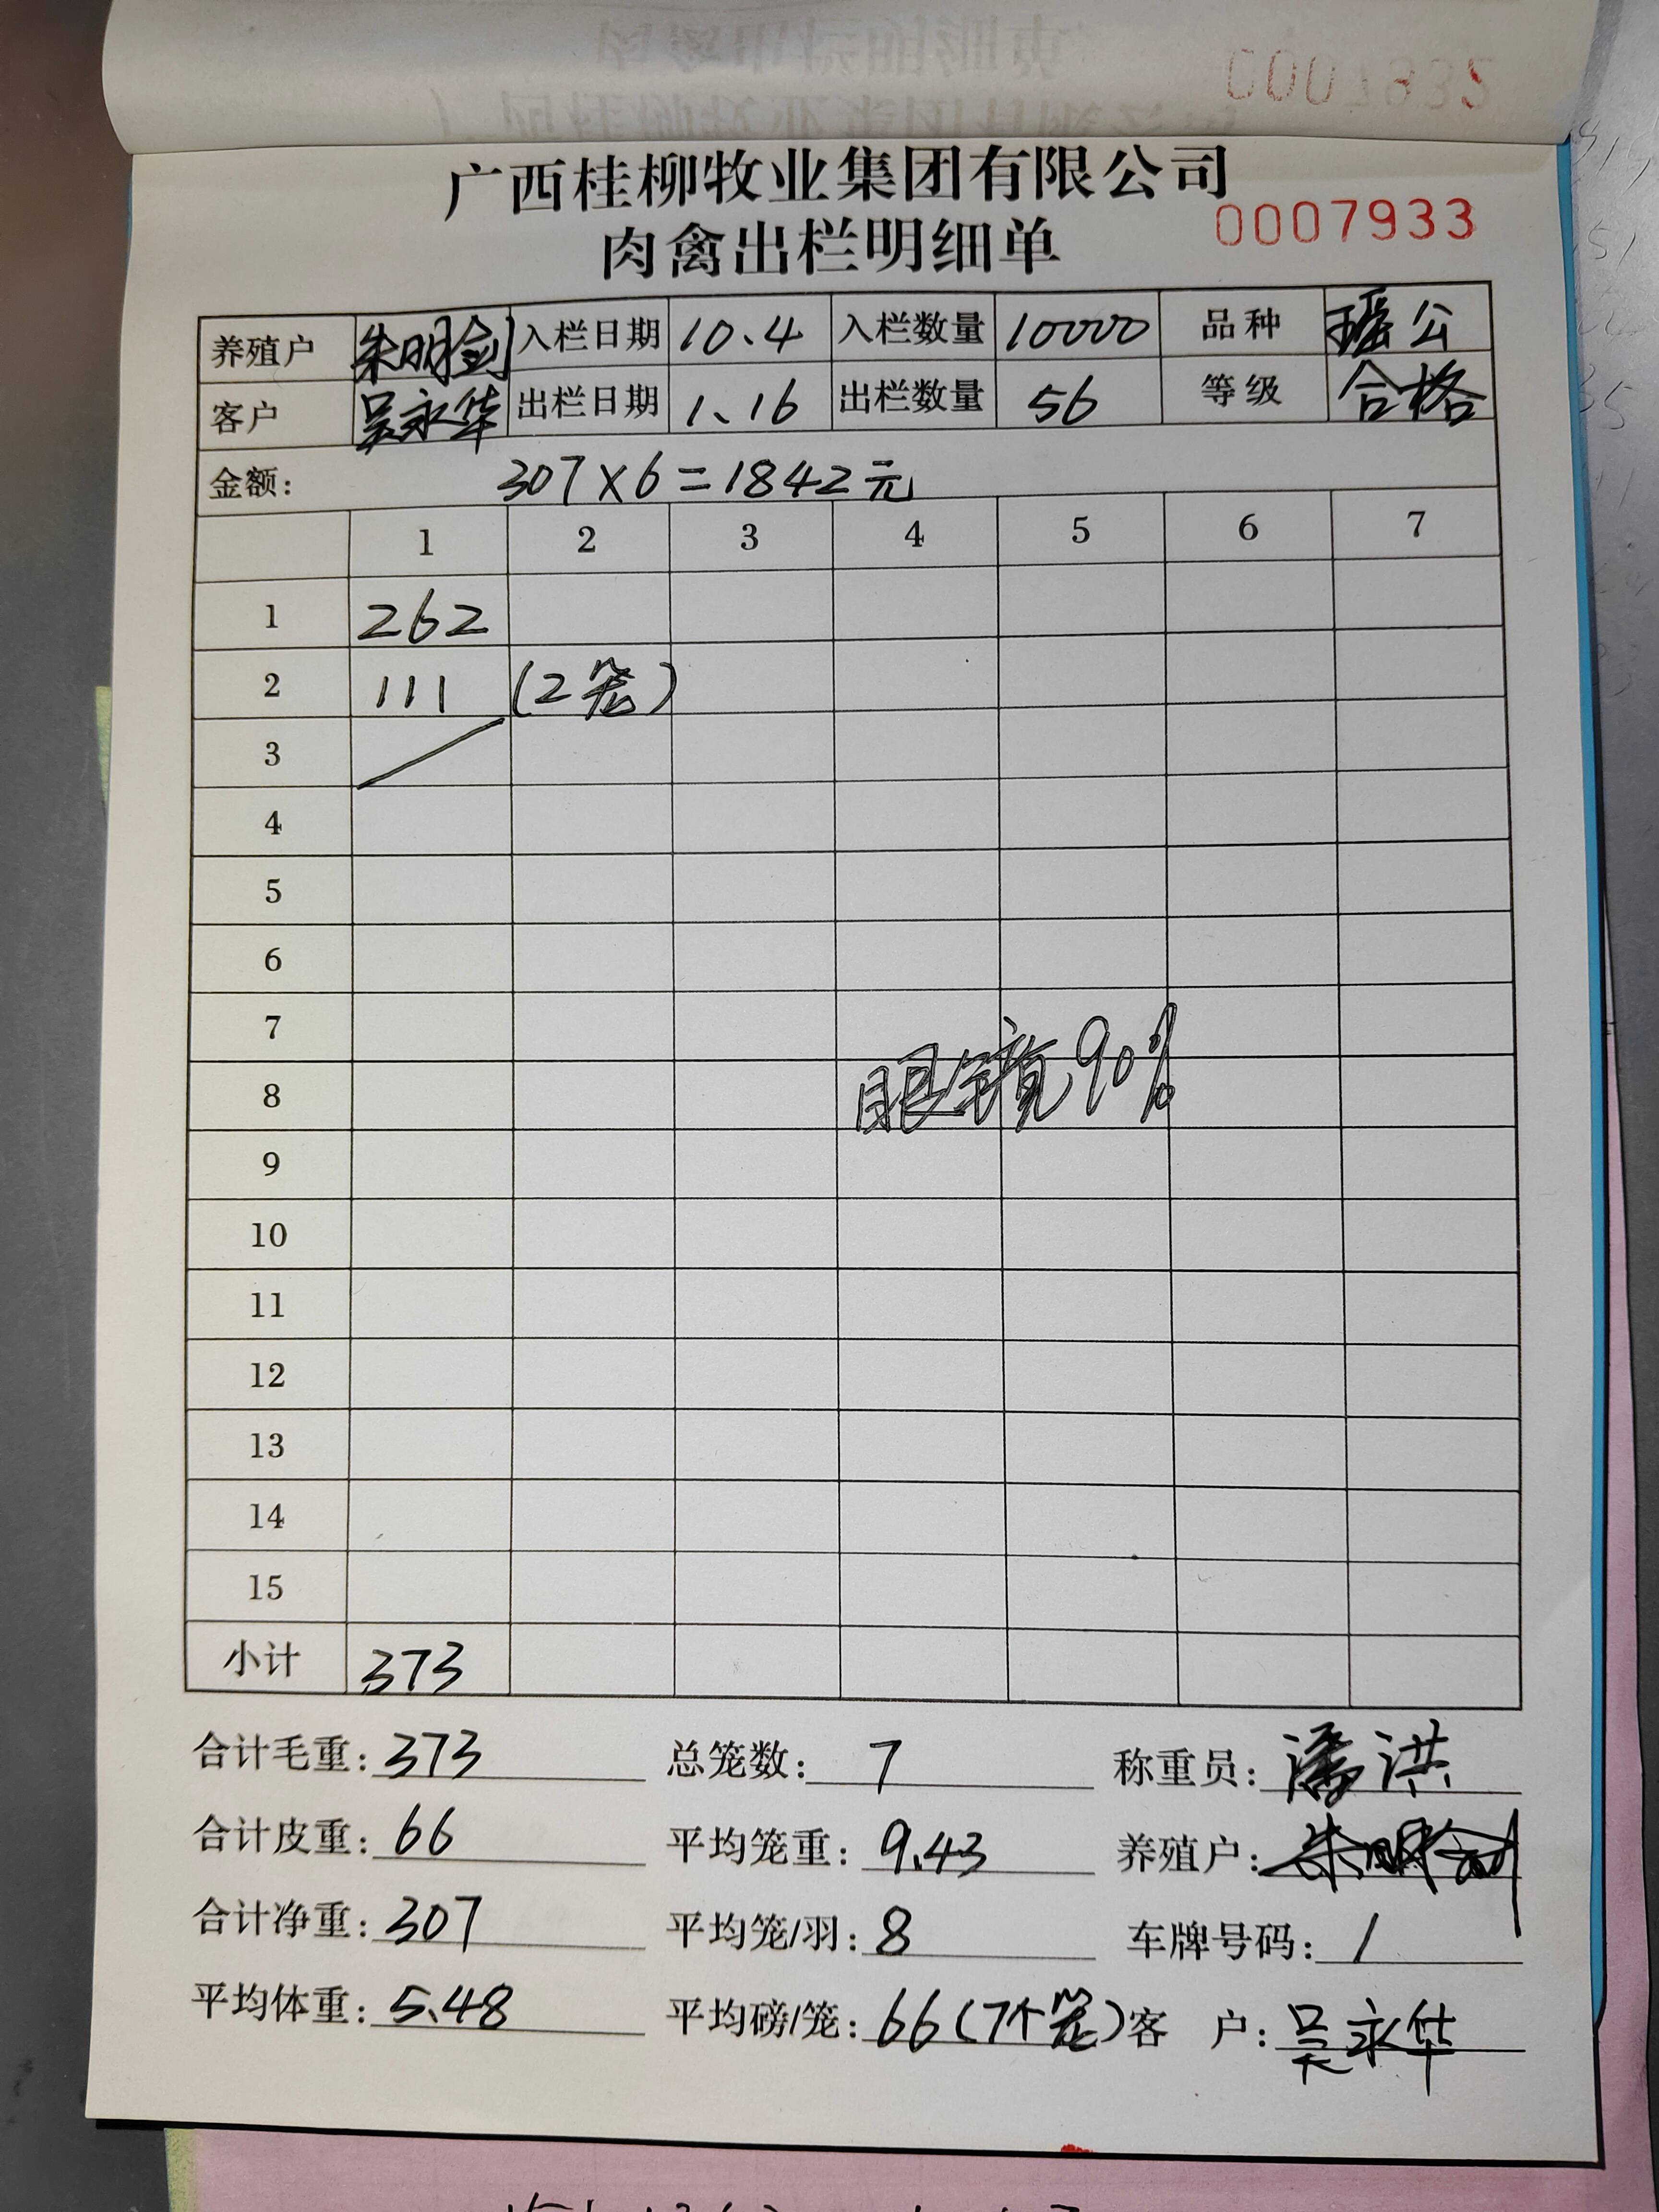 广西桂柳牧业集团有限公司
肉禽出栏明细单 0007933
养殖户 朱明剑 入栏日期 10.4 入栏数量 10000 品种 瑶公
客户 吴永华 出栏日期 1.16 出栏数量 56 等级 合格
金额: 307×6=1842元
1 2 3 4 5 6 7
1 262
2 111 (2笼)
3
4
5
6
7
8 眼镜90%
9
10
11
12
13
14
15
小计 373
合计毛重: 373 总笼数: 7 称重员: 潘洪
合计皮重: 66 平均笼重: 9.43 养殖户: 朱明剑
合计净重: 307 平均笼/羽: 8 车牌号码: /
平均体重: 5.48 平均磅/笼: 66(7个笼) 客 户: 吴永华